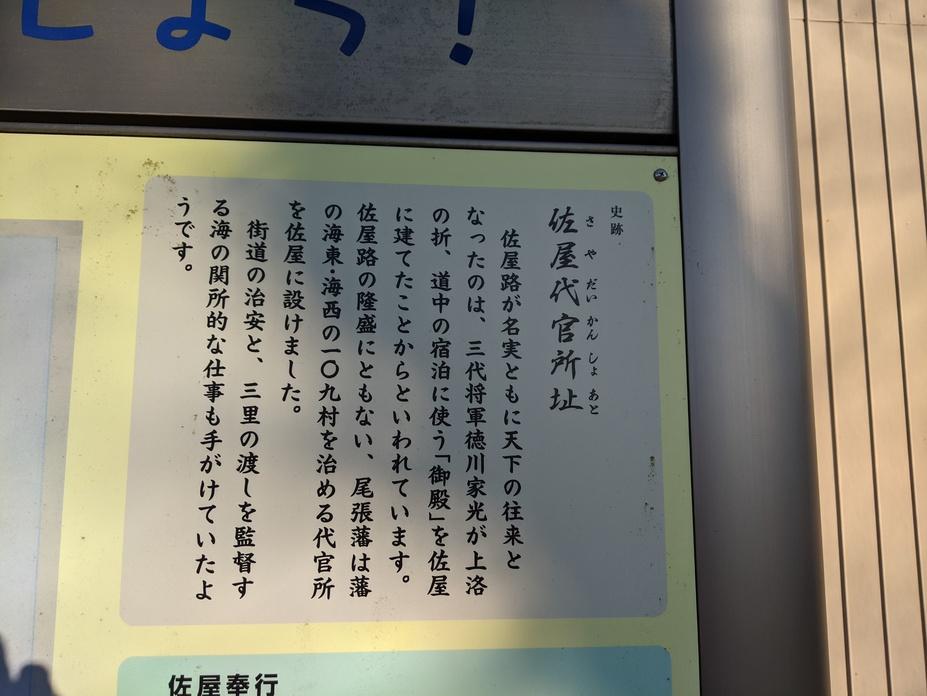 しよう!
史跡
佐屋代官所址
さやだいかんしょあと
佐屋路が名実ともに天下の往来と
なったのは、三代将軍徳川家光が上洛
の折、道中の宿泊に使う「御殿」を佐屋
に建てたことからといわれています。
佐屋路の隆盛にともない、尾張藩は藩
の海東・海西の一〇九村を治める代官所
を佐屋に設けました。
街道の治安と、三里の渡しを監督す
る海の関所的な仕事も手がけていたよ
うです。
佐屋奉行